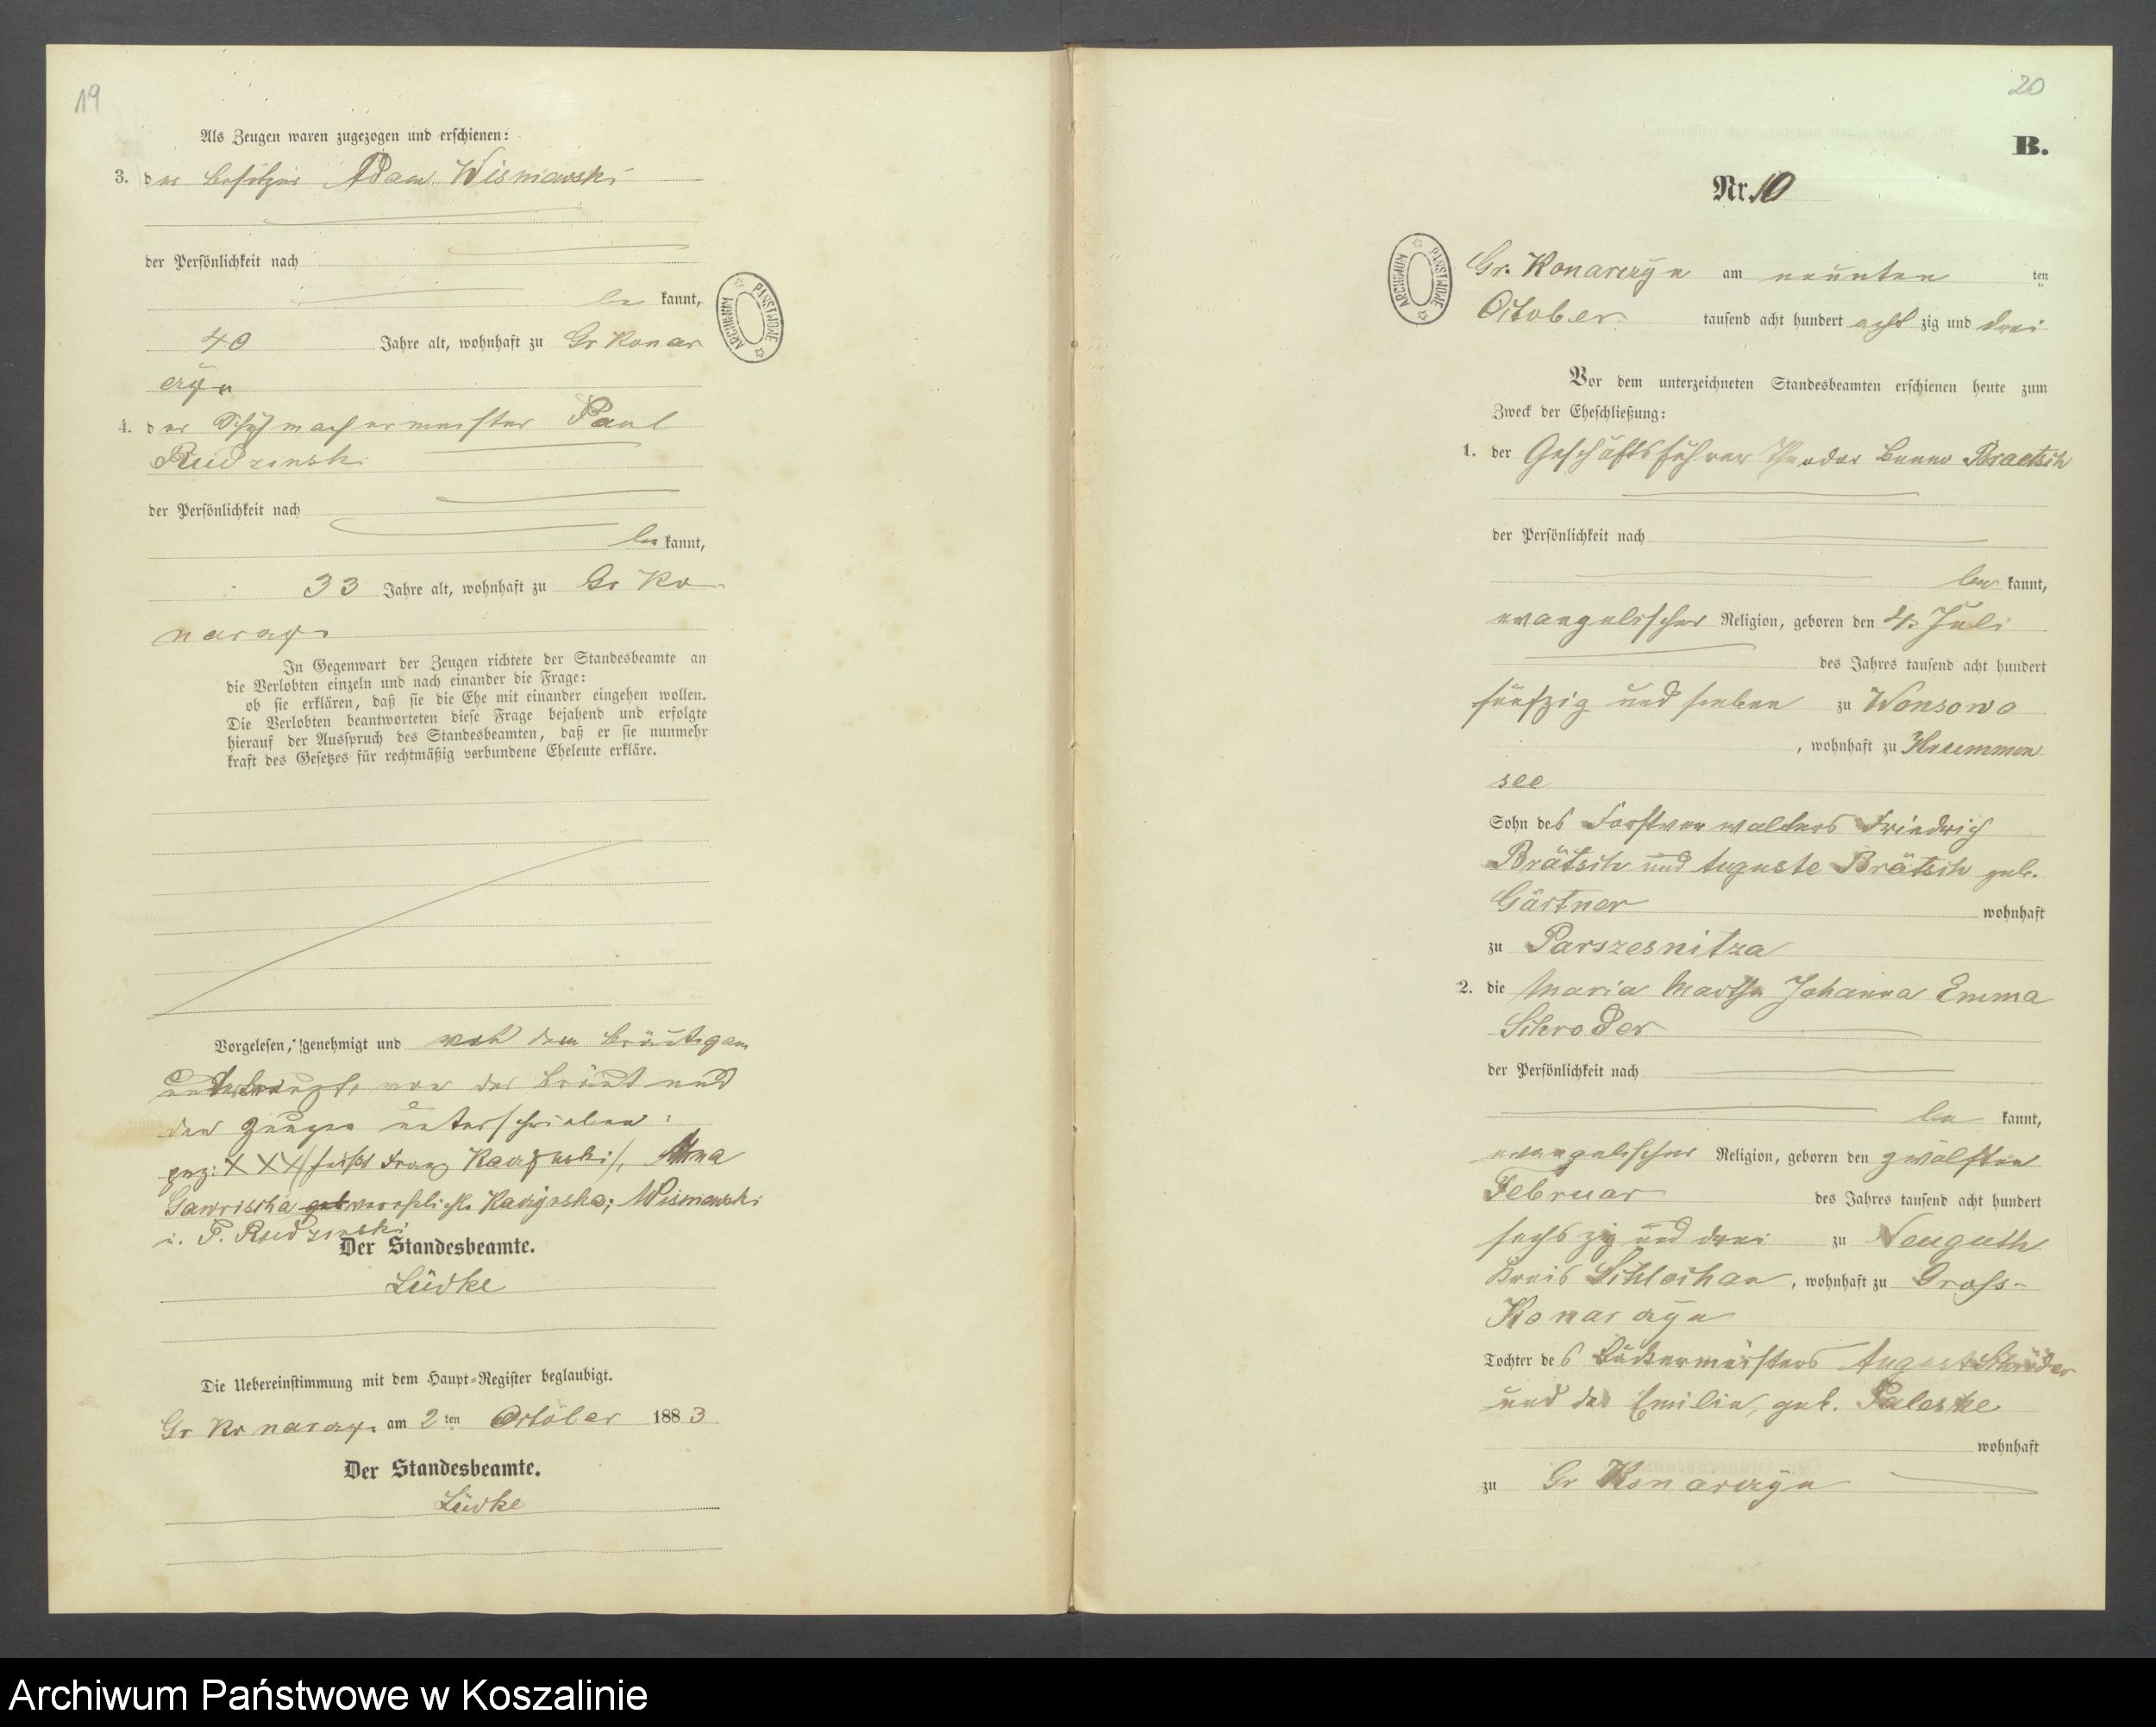 19
Als Zeugen waren zugezogen und erschienen:
3. der Besitzer Adam Wisniewski
der Persönlichkeit nach
be kannt,
40 Jahre alt, wohnhaft zu Gr Konar
czyn
4. der Schuhmachermeister Paul
Rudzinski
der Persönlichkeit nach
be kannt,
33 Jahre alt, wohnhaft zu Gr Ko
narczyn
In Gegenwart der Zeugen richtete der Standesbeamte an
die Verlobten einzeln und nach einander die Frage:
ob sie erklären, daß sie die Ehe mit einander eingehen wollen.
Die Verlobten beantworteten diese Frage bejahend und erfolgte
hierauf der Ausspruch des Standesbeamten, daß er sie nunmehr
kraft des Gesetzes für rechtmäßig verbundene Eheleute erkläre.
Vorgelesen, genehmigt und von dem Bräutigam
unterkreuzt, von der Braut und
den Zeugen unterschrieben:
gez: XXX /: Franz :/, Anna
verehelichte Wisniewski
u. P. Rudzinski
Der Standesbeamte.
Lüdke
Die Uebereinstimmung mit dem Haupt-Register beglaubigt.
Gr Konarczyn am 2 ten October 1883
Der Standesbeamte.
Lüdke
20
B.
Nr. 10
Gr. Konarczyn am neunten ten
October tausend acht hundert acht zig und drei
Vor dem unterzeichneten Standesbeamten erschienen heute zum
Zweck der Eheschließung:
1. der Geschäftsführer Theodor Benno Braetsch
der Persönlichkeit nach
be kannt,
evangelischer Religion, geboren den 4. Juli
des Jahres tausend acht hundert
fünfzig und sieben zu Wonsowo
, wohnhaft zu Krummen
see
Sohn des Forstverwalters Friedrich
Brätsch und Auguste Brätsch geb.
Gärtner wohnhaft
zu Parszesnitza
2. die Maria Martha Johanna Emma
Schroder
der Persönlichkeit nach
be kannt,
evangelischer Religion, geboren den zwölften
Februar des Jahres tausend acht hundert
sechszig und drei zu Neuguth
Kreis Schlochau, wohnhaft zu Gross-
Konarczyn
Tochter des Bäckermeisters August Schröder
und der Emilie, geb. Paleske
wohnhaft
zu Gr Konarczyn
ARCHIWUM PAŃSTWOWE
ARCHIWUM PAŃSTWOWE
Archiwum Państwowe w Koszalinie